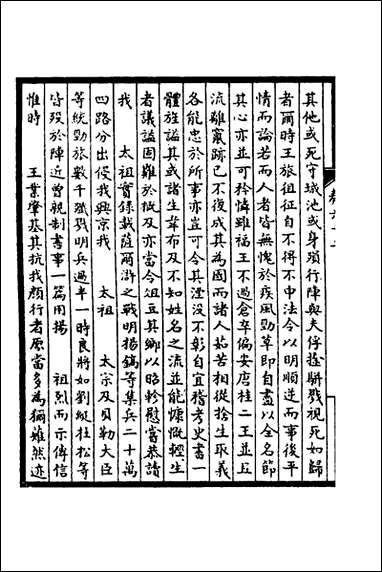 其他或死守城池或身殞行陣與夫俘擒駢戮視死如歸
者爾時王旅徂征自不得不申法令以明順逆而事後平
情而論若而人者皆無愧於疾風勁草即自盡以全名節
其心亦並可矜憐雖福王不過倉卒偏安唐桂二王並且
流離竄跡已不復成其為國而諸人茹苦相從捨生取義
各能忠於所事亦豈可令其湮沒不彰自宜稽考史書一
體旌諡其或諸生韋布及不知姓名之流並能慷慨輕生
者議諡固難於概及亦當令俎豆其鄉以昭軫慰當恭讀
我 太祖實錄載薩爾滸之戰明楊鎬等集兵二十萬
四路分出侵我興京我 太祖 太宗及貝勒大臣
等統勁旅數千殲戮明兵過半一時良將如劉綎杜松等
皆歿於陣近曾親制書事一篇用揚 祖烈而示傳信
惟時 王業肇基其抗我顏行者原當多為獮薙然迹